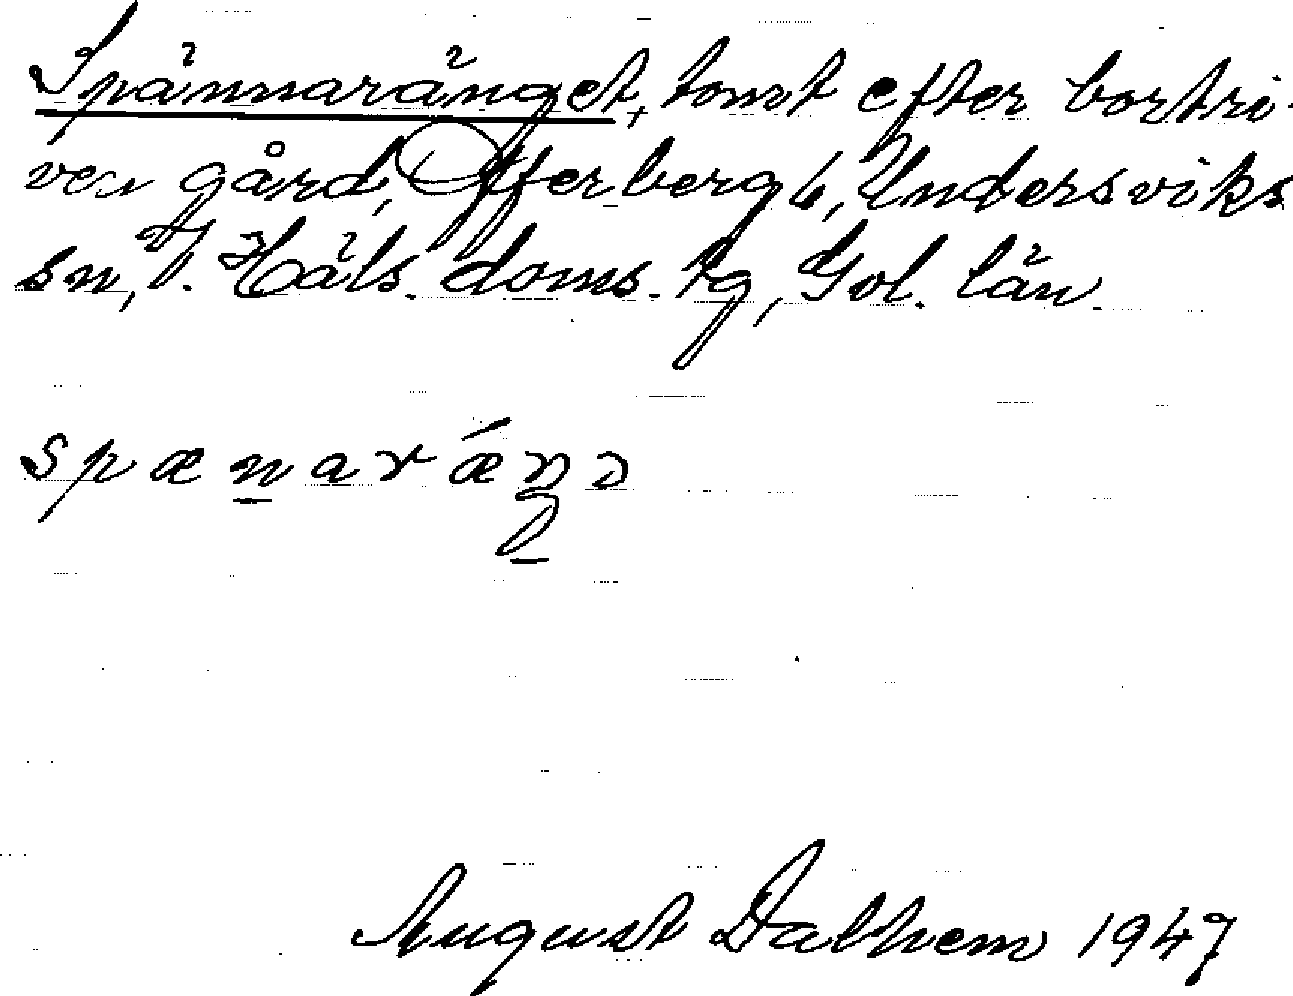 Spännaränget, tomt efter bortri-
ven gård, Offerberg 6, Undersviks
sn, V. Häls. doms. tg, Gvl. län.
spænaræŋə
August Dalhem 1947